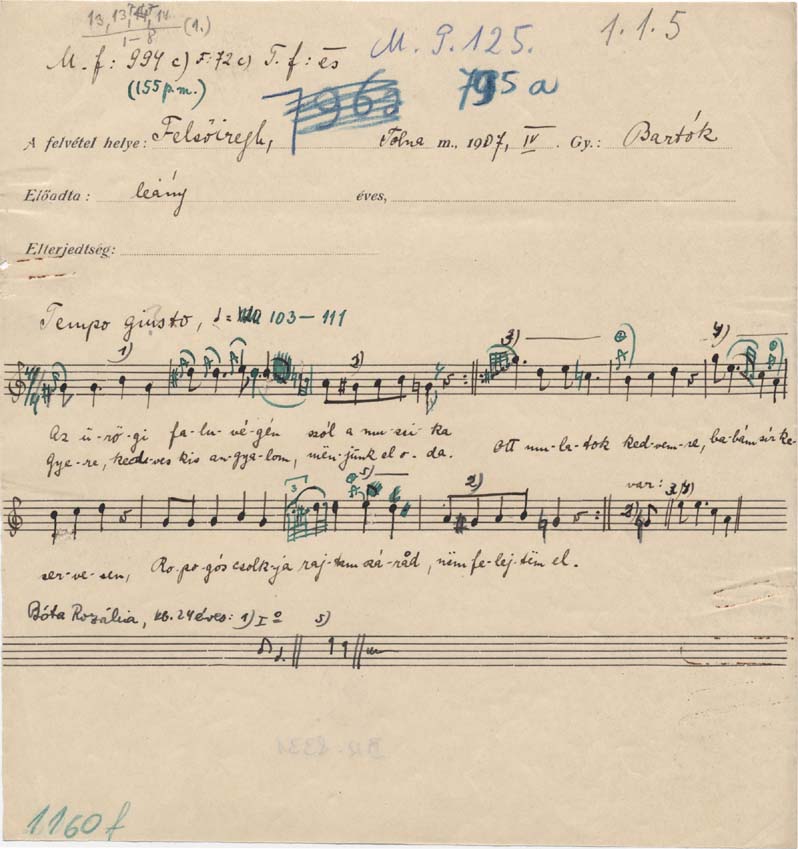 13, 13, 14, 14 (1.)
1-8
1.1.5
M. f: 994 c) F: 72 c) T. f: és
M. P. 125.
(155 p.m.)
796a
795 a
A felvétel helye: Felsőiregh, Tolna m., 1907, IV. Gy.: Bartók
Előadta: leány éves,
Elterjedtség:
Tempo giusto, 103-111
1) 3) 3) 4)
Az ü-rö-gi fa-lu-vé-gén szól a mu-zsi-ka
Ott mu-la-tok ked-vem-re, ba-bám sír ke-
Gye-re, kedves kis an-gya-lom, mën-jünk el o-da.
3 5) 2) var: 3)
ser-ve-sen, Ro-po-gós csolk-ja raj-tam szá-råd, nëm fe-lej-tëm el.
Bóta Rozália, kb. 24 éves: 1) I° 5)
1160 f